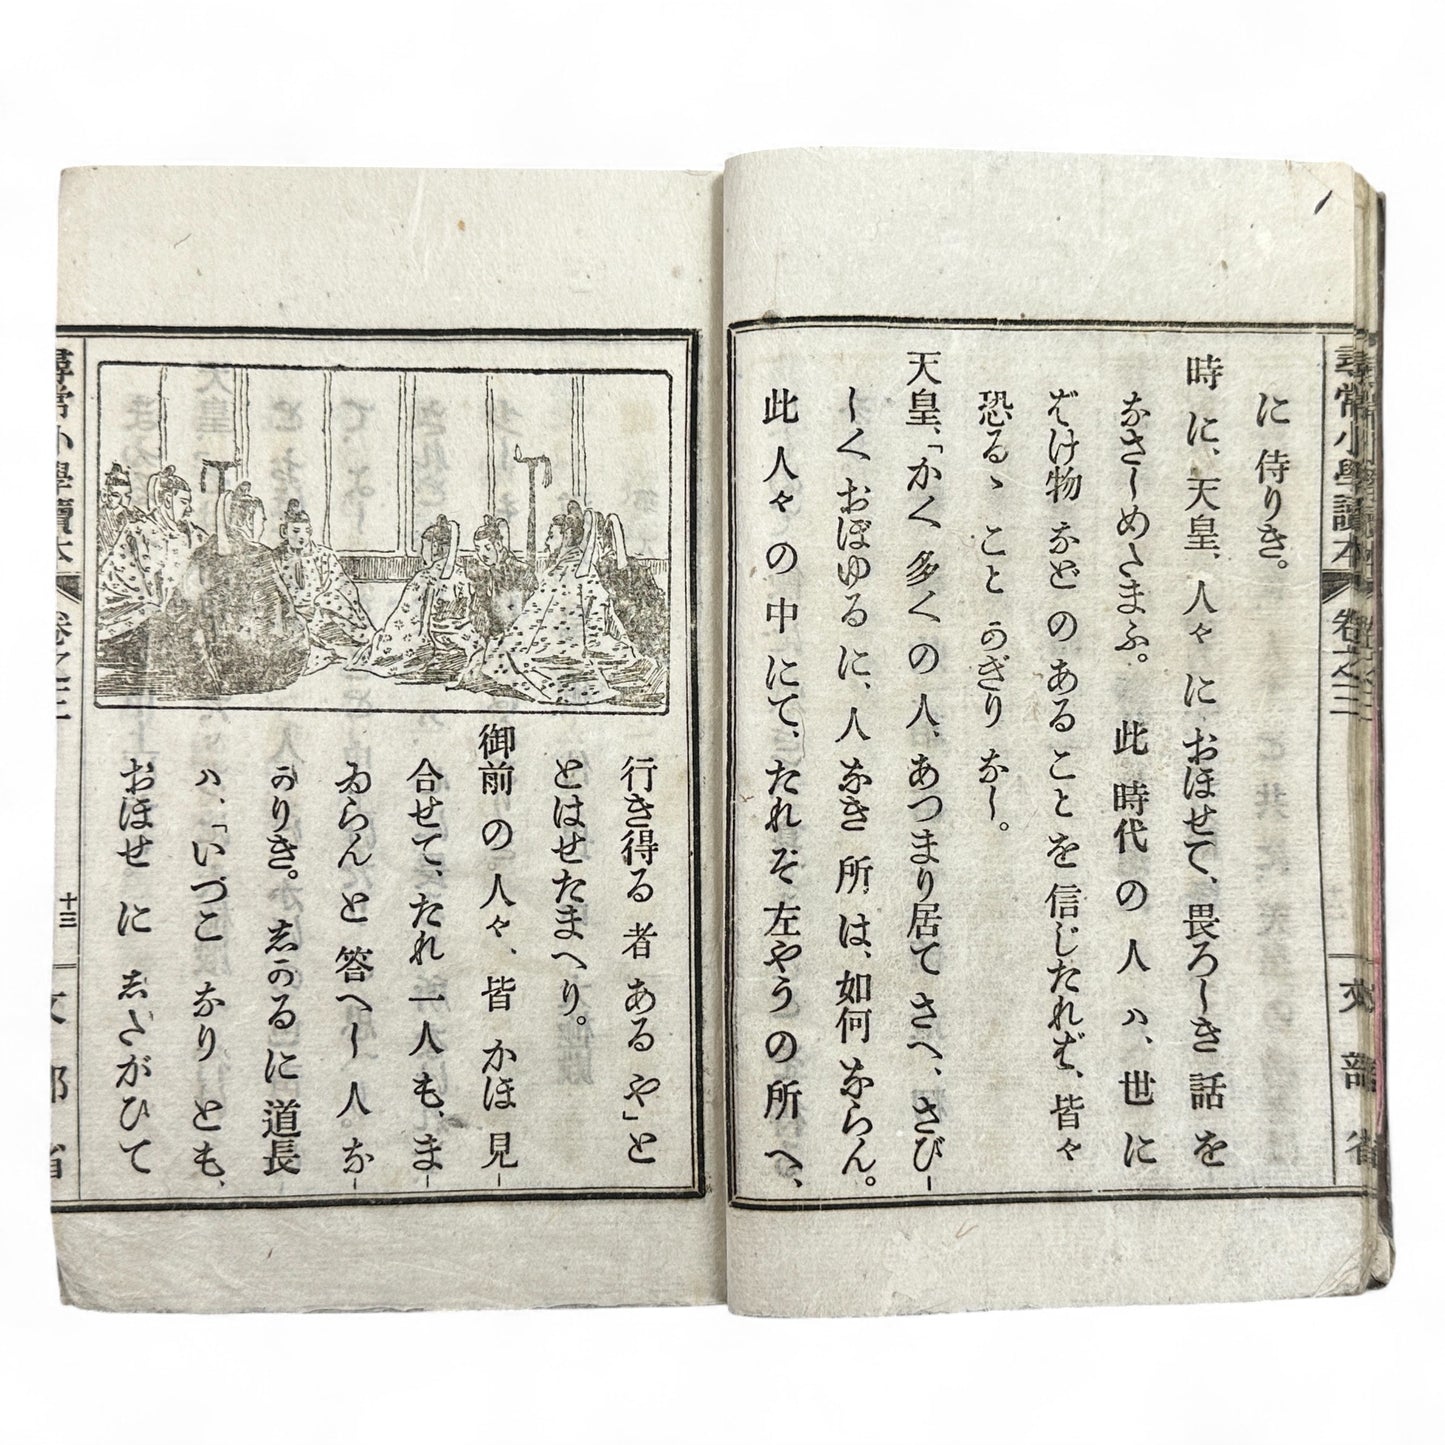 尋常小學讀本
卷之三
文部省
に侍りき。
時に、天皇、人々におほせて、畏ろしき話を
なさしめたまふ。此時代の人ハ、世に
ばけ物などのあることを信じたれバ、皆々
恐るゝことかぎりなし。
天皇、「かく多くの人、あつまり居てさへ、さび
しくおぼゆるに、人なき所は、如何ならん。
此人々の中にて、たれぞ左やうの所へ、
行き得る者あるや」と
とはせたまへり。
御前の人々、皆かほ見
合せて、たれ一人も、ま
ゐらんと答へし人。な
かりき。志かるに道長
ハ、「いづこなりとも、
おほせに志たがひて
尋常小學讀本
十三
文部省